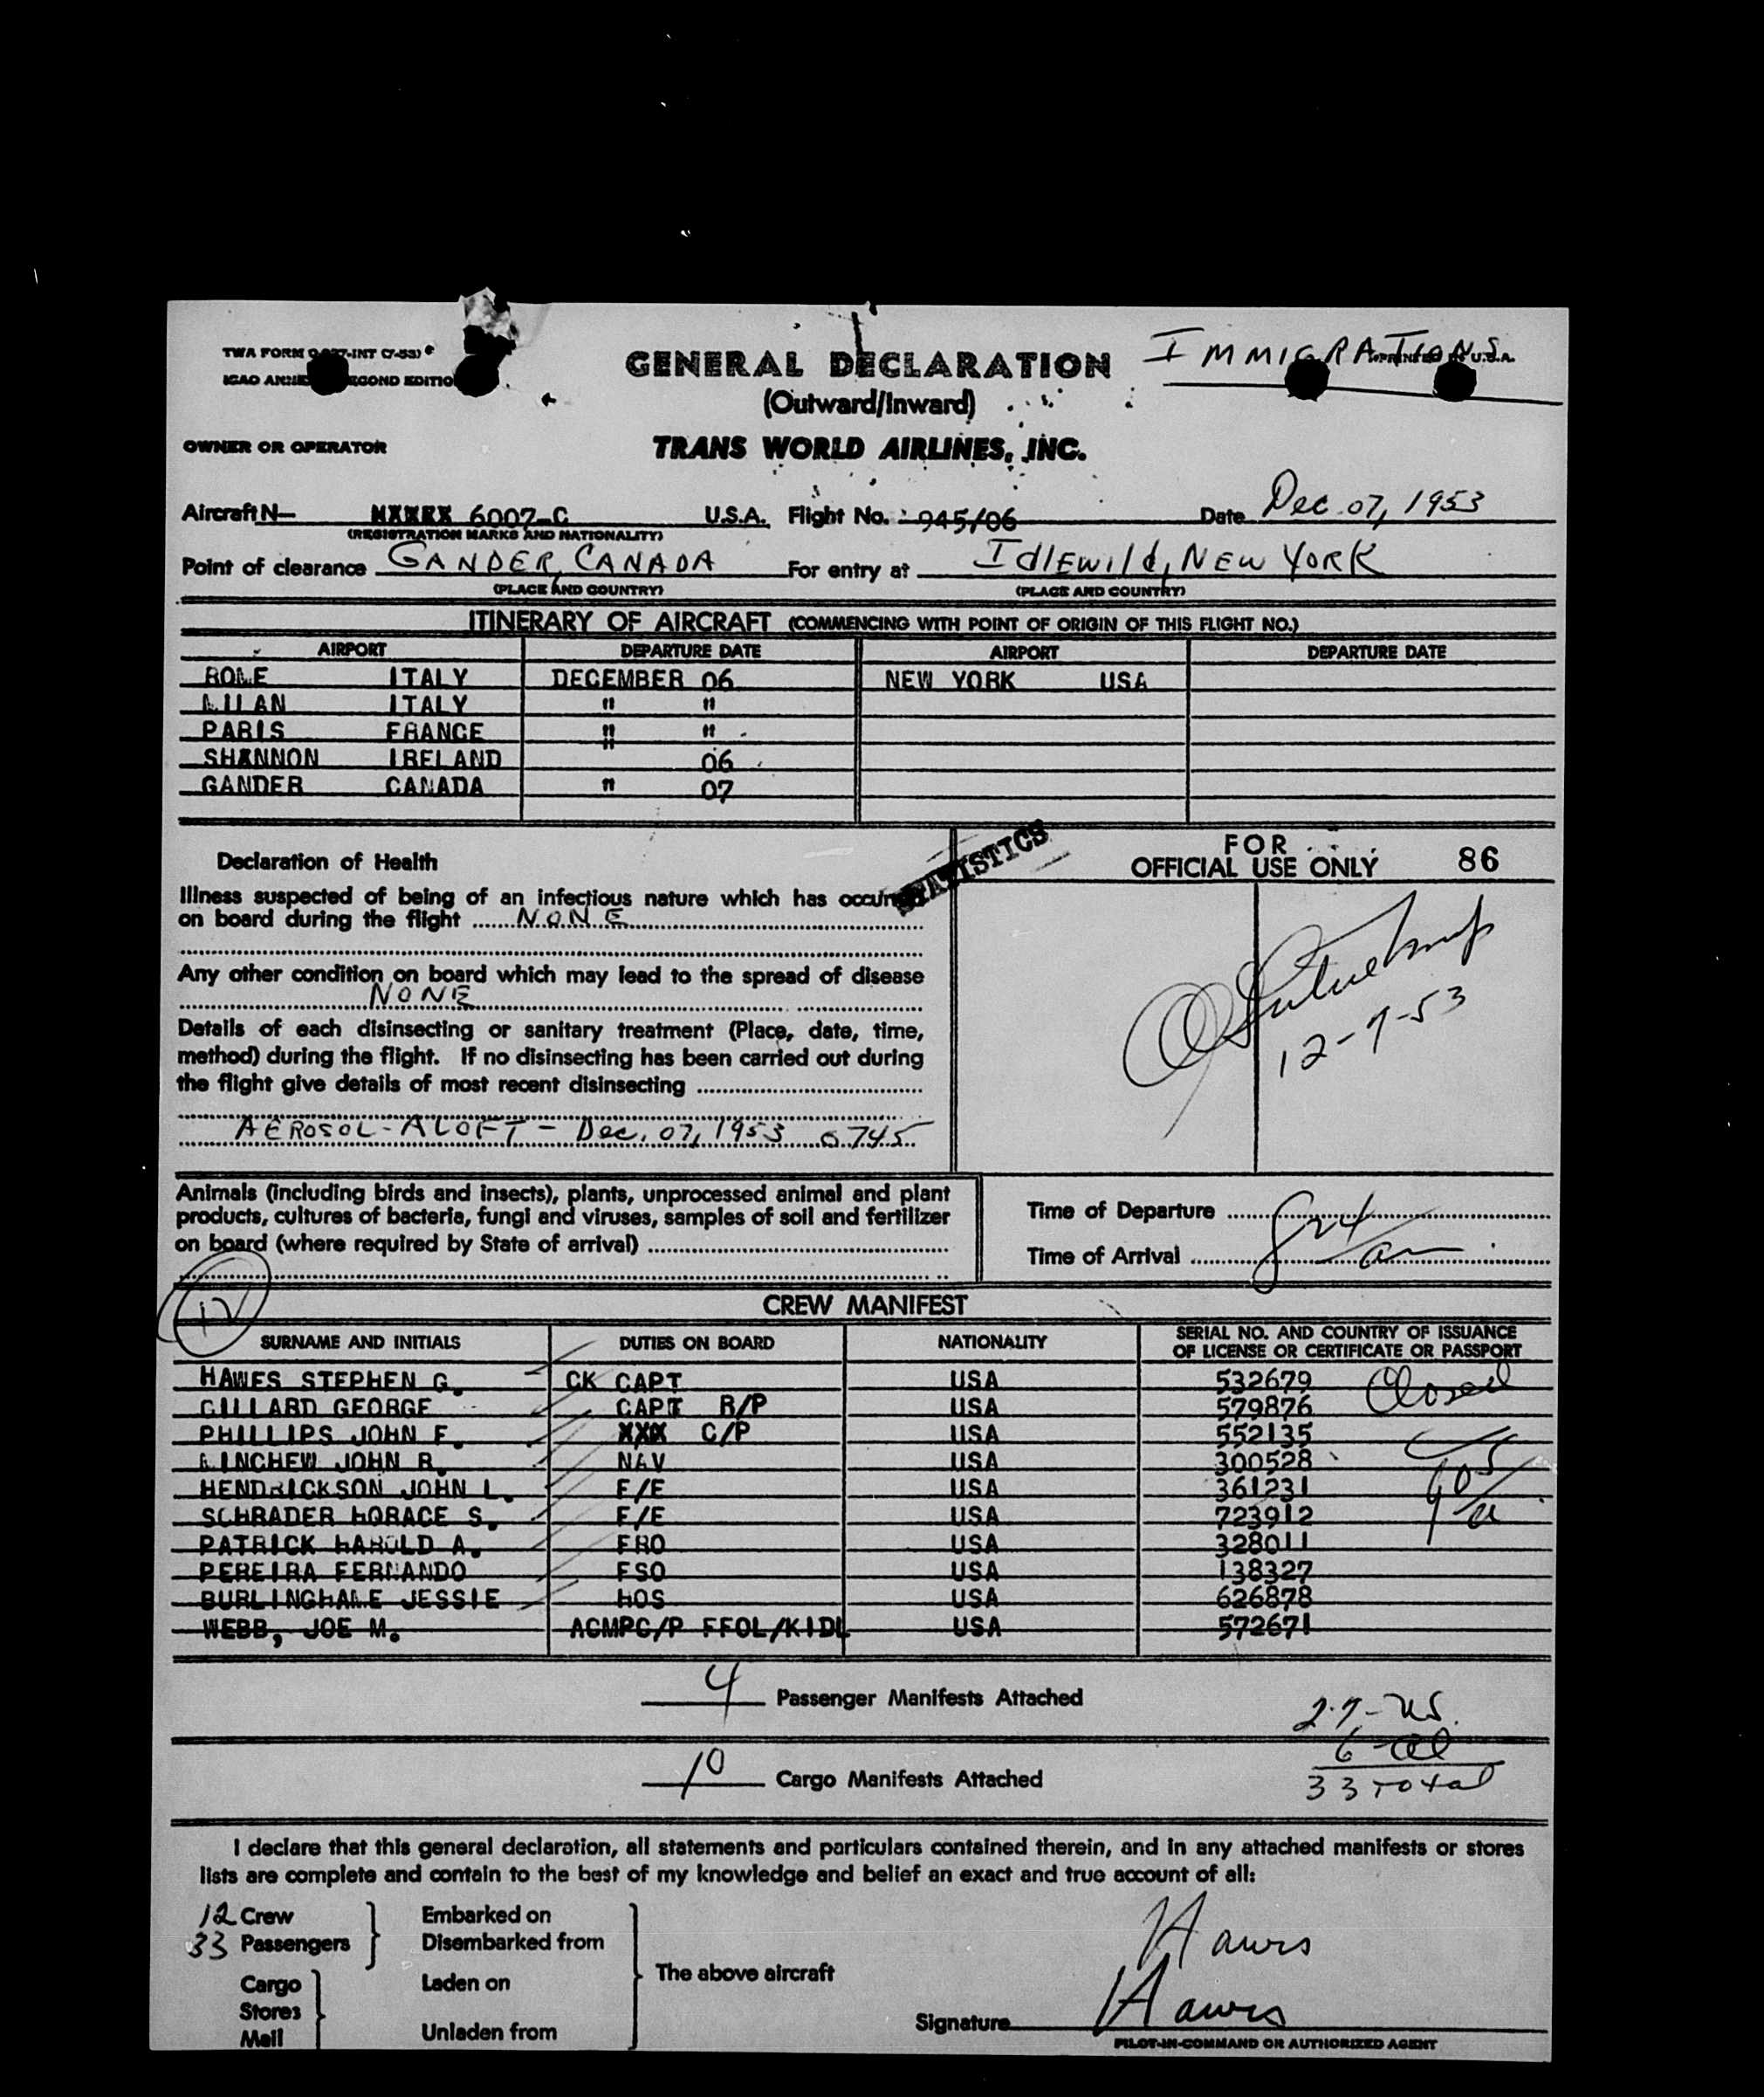 TWA FORM -INT (7-53)
IMMIGRATIONS
PRINTED IN U.S.A.
GENERAL DECLARATION
(Outward/Inward)
OWNER OR OPERATOR TRANS WORLD AIRLINES, INC.
Aircraft N— 6007-C U.S.A. Flight No. 945/06 Date Dec. 07, 1953
(REGISTRATION MARKS AND NATIONALITY)
Point of clearance GANDER, CANADA For entry at IdlEWild, NEW YORK
(PLACE AND COUNTRY) (PLACE AND COUNTRY)
ITINERARY OF AIRCRAFT (COMMENCING WITH POINT OF ORIGIN OF THIS FLIGHT NO.)
AIRPORT DEPARTURE DATE AIRPORT DEPARTURE DATE
ROME ITALY DECEMBER 06 NEW YORK USA
MILAN ITALY " "
PARIS FRANCE " "
SHANNON IRELAND " 06
GANDER CANADA " 07
STATISTICS
Declaration of Health
Illness suspected of being of an infectious nature which has occurred
on board during the flight NONE
Any other condition on board which may lead to the spread of disease
NONE
Details of each disinsecting or sanitary treatment (Place, date, time,
method) during the flight. If no disinsecting has been carried out during
the flight give details of most recent disinsecting
AEROSOL-ALOFT - Dec. 07, 1953 0745
FOR
OFFICIAL USE ONLY 86
12-7-53
Animals (including birds and insects), plants, unprocessed animal and plant
products, cultures of bacteria, fungi and viruses, samples of soil and fertilizer
on board (where required by State of arrival)
Time of Departure
Time of Arrival 824 am
12
CREW MANIFEST
SURNAME AND INITIALS DUTIES ON BOARD NATIONALITY SERIAL NO. AND COUNTRY OF ISSUANCE
OF LICENSE OR CERTIFICATE OR PASSPORT
HAWES STEPHEN G. CK CAPT USA 532679 Closed
GILLARD GEORGE CAPT R/P USA 579876
PHILLIPS JOHN F. XXX C/P USA 552135
MINCHEW JOHN R. NAV USA 300528
HENDRICKSON JOHN L. F/E USA 361231
SCHRADER HORACE S. F/E USA 723912
PATRICK HAROLD A. FRO USA 328011
PEREIRA FERNANDO FSO USA 138327
BURLINGHAME JESSIE HOS USA 626878
WEBB, JOE M. ACMPC/P FFOL/KIDL USA 572671
4 Passenger Manifests Attached
10 Cargo Manifests Attached
27-US.
6-al
33 Total
I declare that this general declaration, all statements and particulars contained therein, and in any attached manifests or stores
lists are complete and contain to the best of my knowledge and belief an exact and true account of all:
12 Crew Embarked on
33 Passengers Disembarked from
Cargo Laden on
Stores
Mail Unladen from
The above aircraft
Hawes
Signature Hawes
PILOT-IN-COMMAND OR AUTHORIZED AGENT